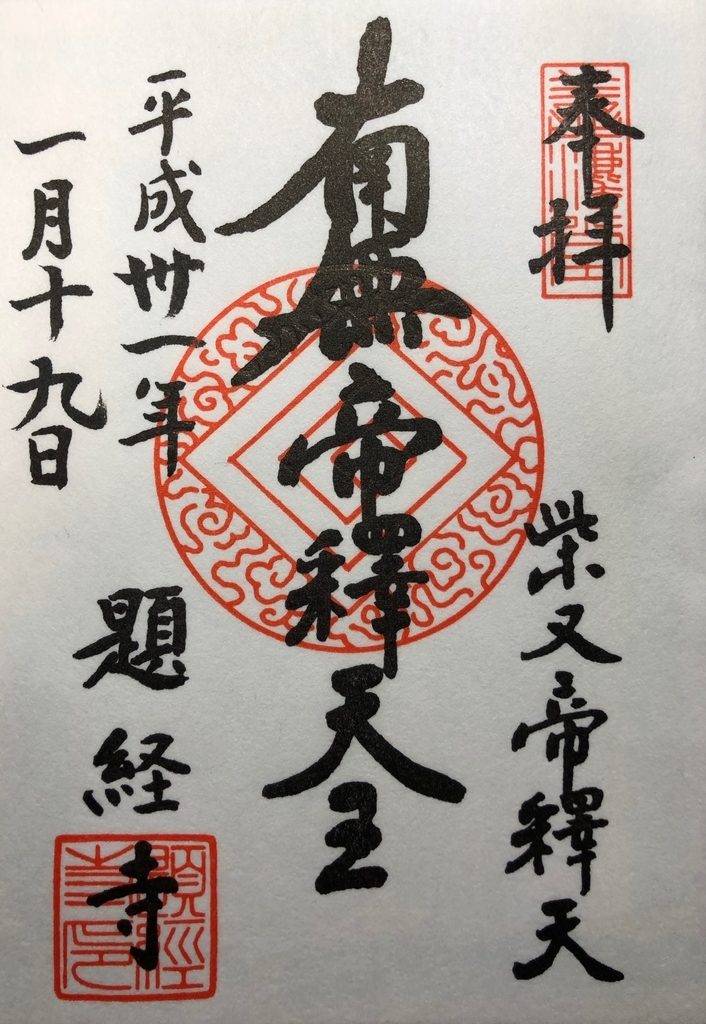 奉拝
柴又帝釋天
南無帝釋天王
平成卅一年
一月十九日
題経寺
題経寺印